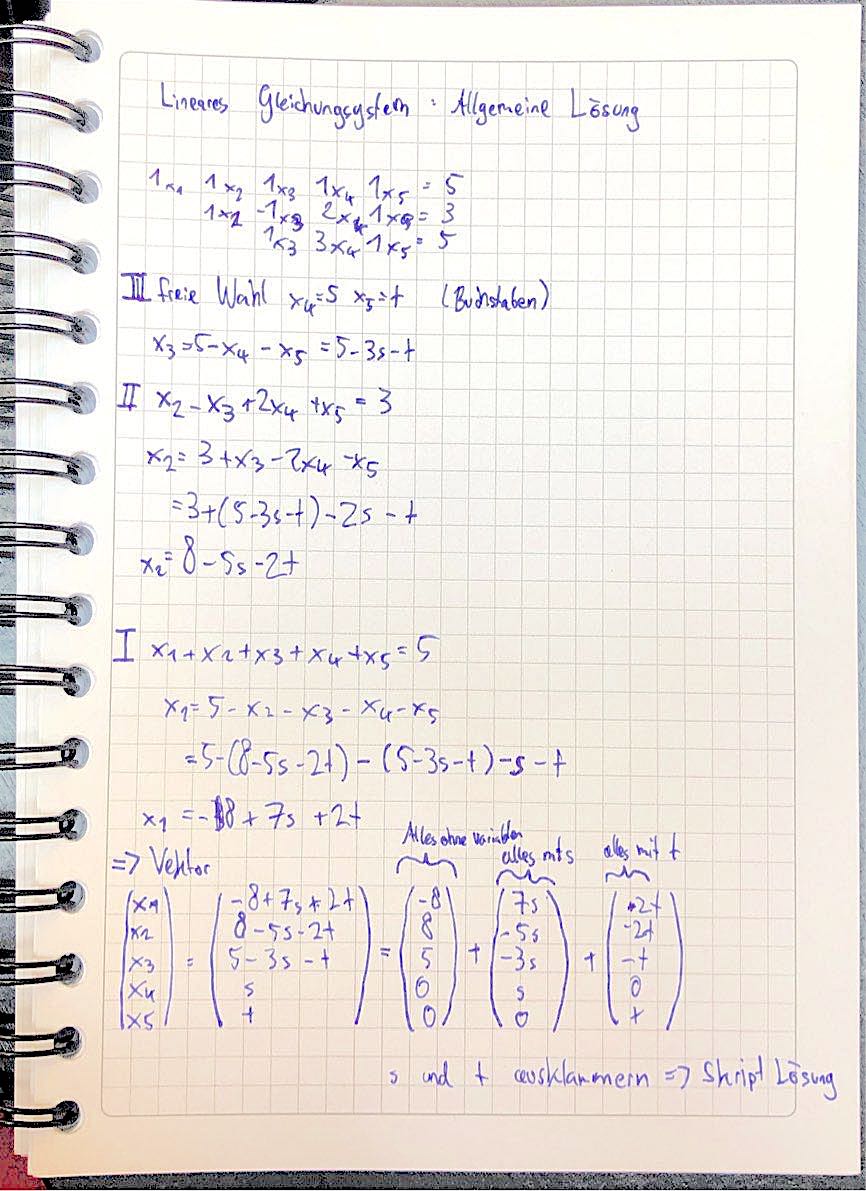 Lineares Gleichungsystem : Allgemeine Lösung
1x1 1x2 1x3 1x4 1x5 = 5
1x2 -1x3 2x4 1x5 = 3
1x3 3x4 1x5 = 5
III freie Wahl x4=5 x5=t (Buchstaben)
x3=5-x4-x5 = 5-3s-t
II x2-x3+2x4+x5 = 3
x2= 3+x3-2x4-x5
=3+(5-3s-t)-2s-t
x2= 8-5s-2t
I x1+x2+x3+x4+x5=5
x1=5-x2-x3-x4-x5
=5-(8-5s-2t)-(5-3s-t)-s-t
x1 = -8+7s+2t
Alles ohne variablen alles mt s alles mit t
=> Vektor
(x1) (-8+7s+2t) (-8) (7s) (2t)
(x2) (8-5s-2t) (8) (-5s) (-2t)
(x3) = (5-3s-t) = (5) + (-3s) + (-t)
(x4) (s) (0) (s) (0)
(x5) (t) (0) (0) (t)
s und t ausklammern => Skript Lösung